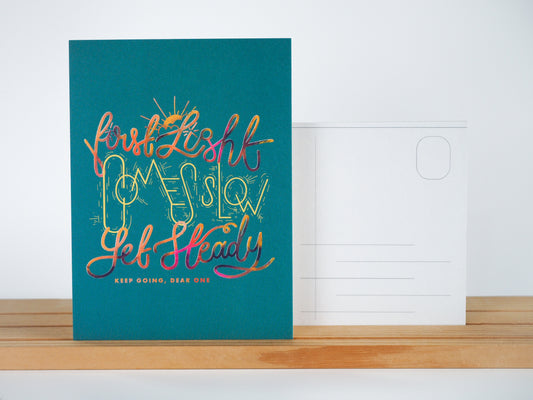 first Light
COMES SLOW
Yet Steady
KEEP GOING, DEAR ONE